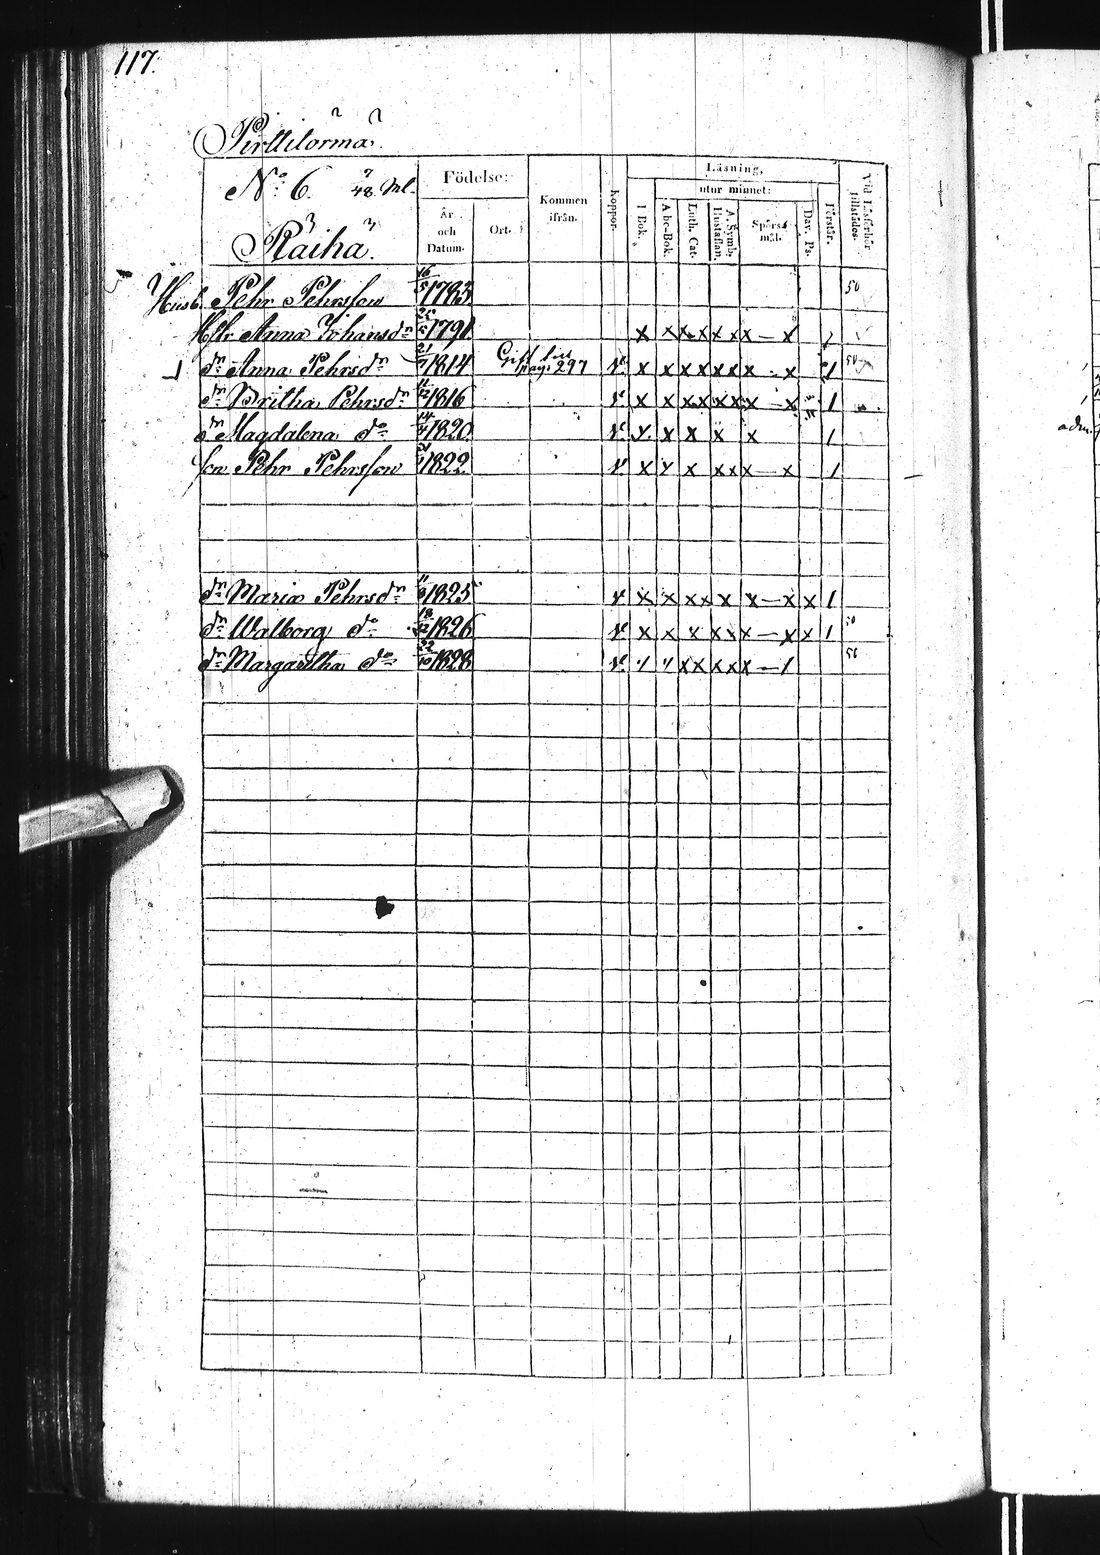 117.
Pirttilorma
No 6. 7/48 Ml.
Räihä.
Födelse:
År och Datum.
Ort.
Kommen ifrån.
Koppor.
Läsning,
utur minnet:
I Bok.
Abc-Bok.
Luth. Cat.
A. Symb. Hustaflan.
Spörsmål.
Dav. Ps.
Förstår.
Vid Läsförhör tillstädes.
Husb. Pehr Pehrsson 16/5 1783 50
Hstr Anna Johansdr 1791 x x x x x x x x — x 1
dr Anna Pehrsdr 21/7 1814 Gift till pag. 297 v. x x x x x x x x - x 1 50
dr Britha Pehrsdr 11/12 1816 v x x x x x x x x — x 1
dr Magdalena do 14/7 1820 v. x x x x x 1
son Pehr Pehrsson 1822 v x x x x x x — x 1
dr Maria Pehrsdr 1825 v x x x x x x — x x 1
dr Walborg do 18/12 1826 v. x x x x x x — x x 1
dr Margaretha do 22/10 1828 v. x x x x x x x — 1 50